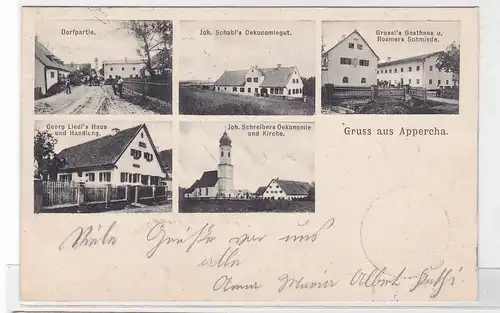 Dorfpartie.
Joh. Schabl's Oekonomiegut.
Grassl's Gasthaus u.
Rosmers Schmiede.
Georg Liedl's Haus
und Handlung.
Joh. Schreibers Oekonomie
und Kirche.
Gruss aus Appercha.
Viele Grüße von uns
alle
Anna Maria Albert